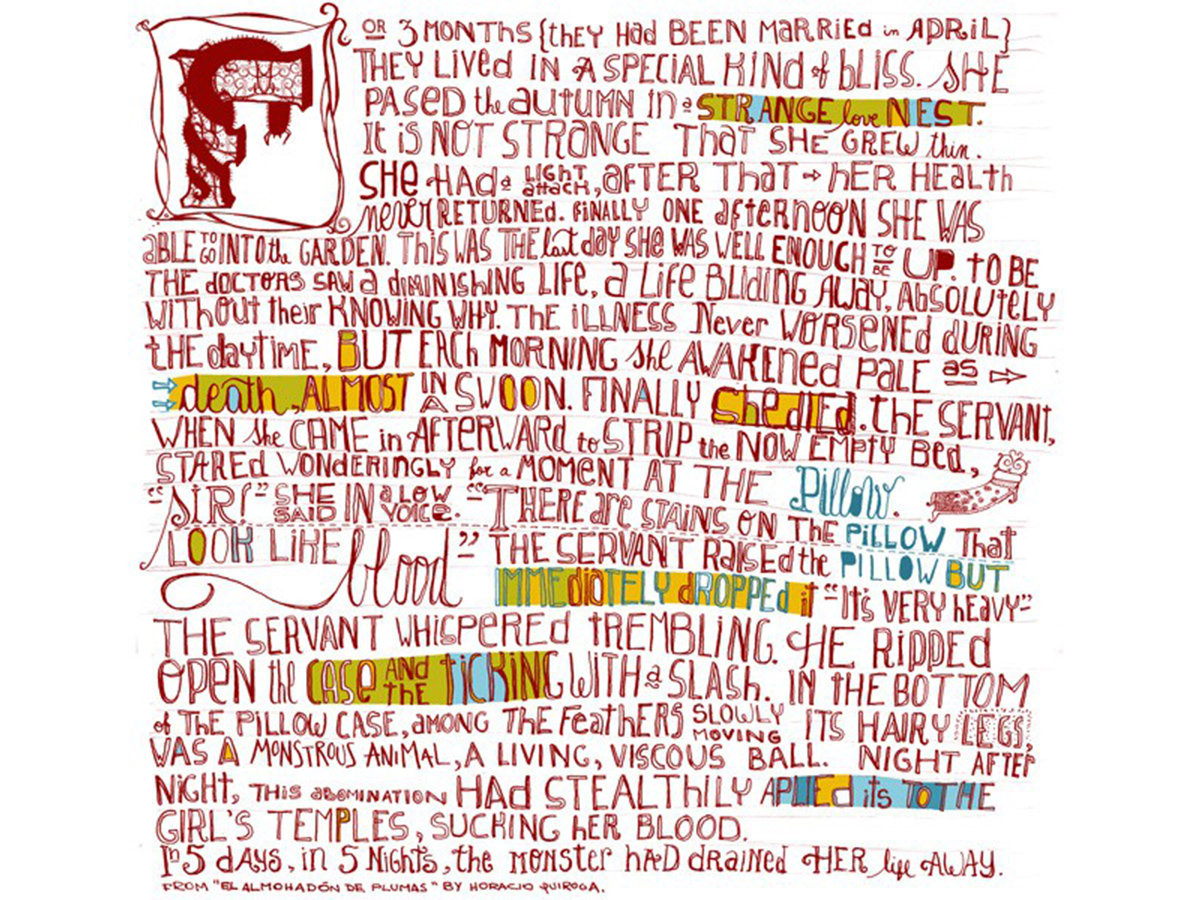 FOR 3 MONTHS {THEY HAD BEEN MARRIED in APRIL}
THEY LIVED IN A SPECIAL KIND of BLISS. SHE
PASED the AUTUMN IN a STRANGE love NEST.
It is NOT STRANGE THAT SHE GREW thin.
SHE HAD a LIGHT attack, AFTER THAT → HER HEALTH
never RETURNED. FINALLY ONE AFTERNOON SHE WAS
ABLE TO GO INTO the GARDEN. THIS WAS THE last day SHE WAS WELL ENOUGH TO BE UP. TO BE
THE DOCTORS SAW a DIMINISHING LIFE, a LIFE BLIDING AWAY, ABSOLUTELY
WITHOUT their KNOWING WHY. THE ILLNESS Never WORSENED DURING
tHE daytime, BUT EACH MORNING she AWAKENED PALE as ⇨
⇨ death, ALMOST IN A SWOON. FINALLY She dIEd. tHE SERVANT,
WHEN she CAME in AFTERWARD to STRIP the NOW EMPTY BED,
STARED WONDERINGLY for a MOMENT AT THE Pillow.
"SIR!" SHE SAID IN a LOW VOICE. "THERE are STAINS ON THE PILLOW That
LOOK LIKE blood" THE SERVANT RAISED the PILLOW BUT
IMMEdIATELY dROPPEd it "It's VERY heavy"
THE SERVANT WHISPERED tREMBLING. HE RIPPED
OPEN the CASE AND THE tICKING WITH a SLASH. IN tHE BOTTOM
of THE PILLOW CASE, AMONG THE FEATHERS SLOWLY MOVING ITS HAIRY LEGS,
WAS A MONSTROUS ANIMAL, A LIVING, VISCOUS BALL. NIGHT AFTER
NIGHT, THIS ABOMINATION HAD STEALTHILY APLIEd its TO THE
GIRL'S TEMPLES, SUCKING HER BLOOD.
In 5 dAYS, in 5 NIGHTS, the MONSTER HAD drained HER life AWAY.
FROM "EL ALMOHADÓN DE PLUMAS" BY HORACIO QUIROGA.